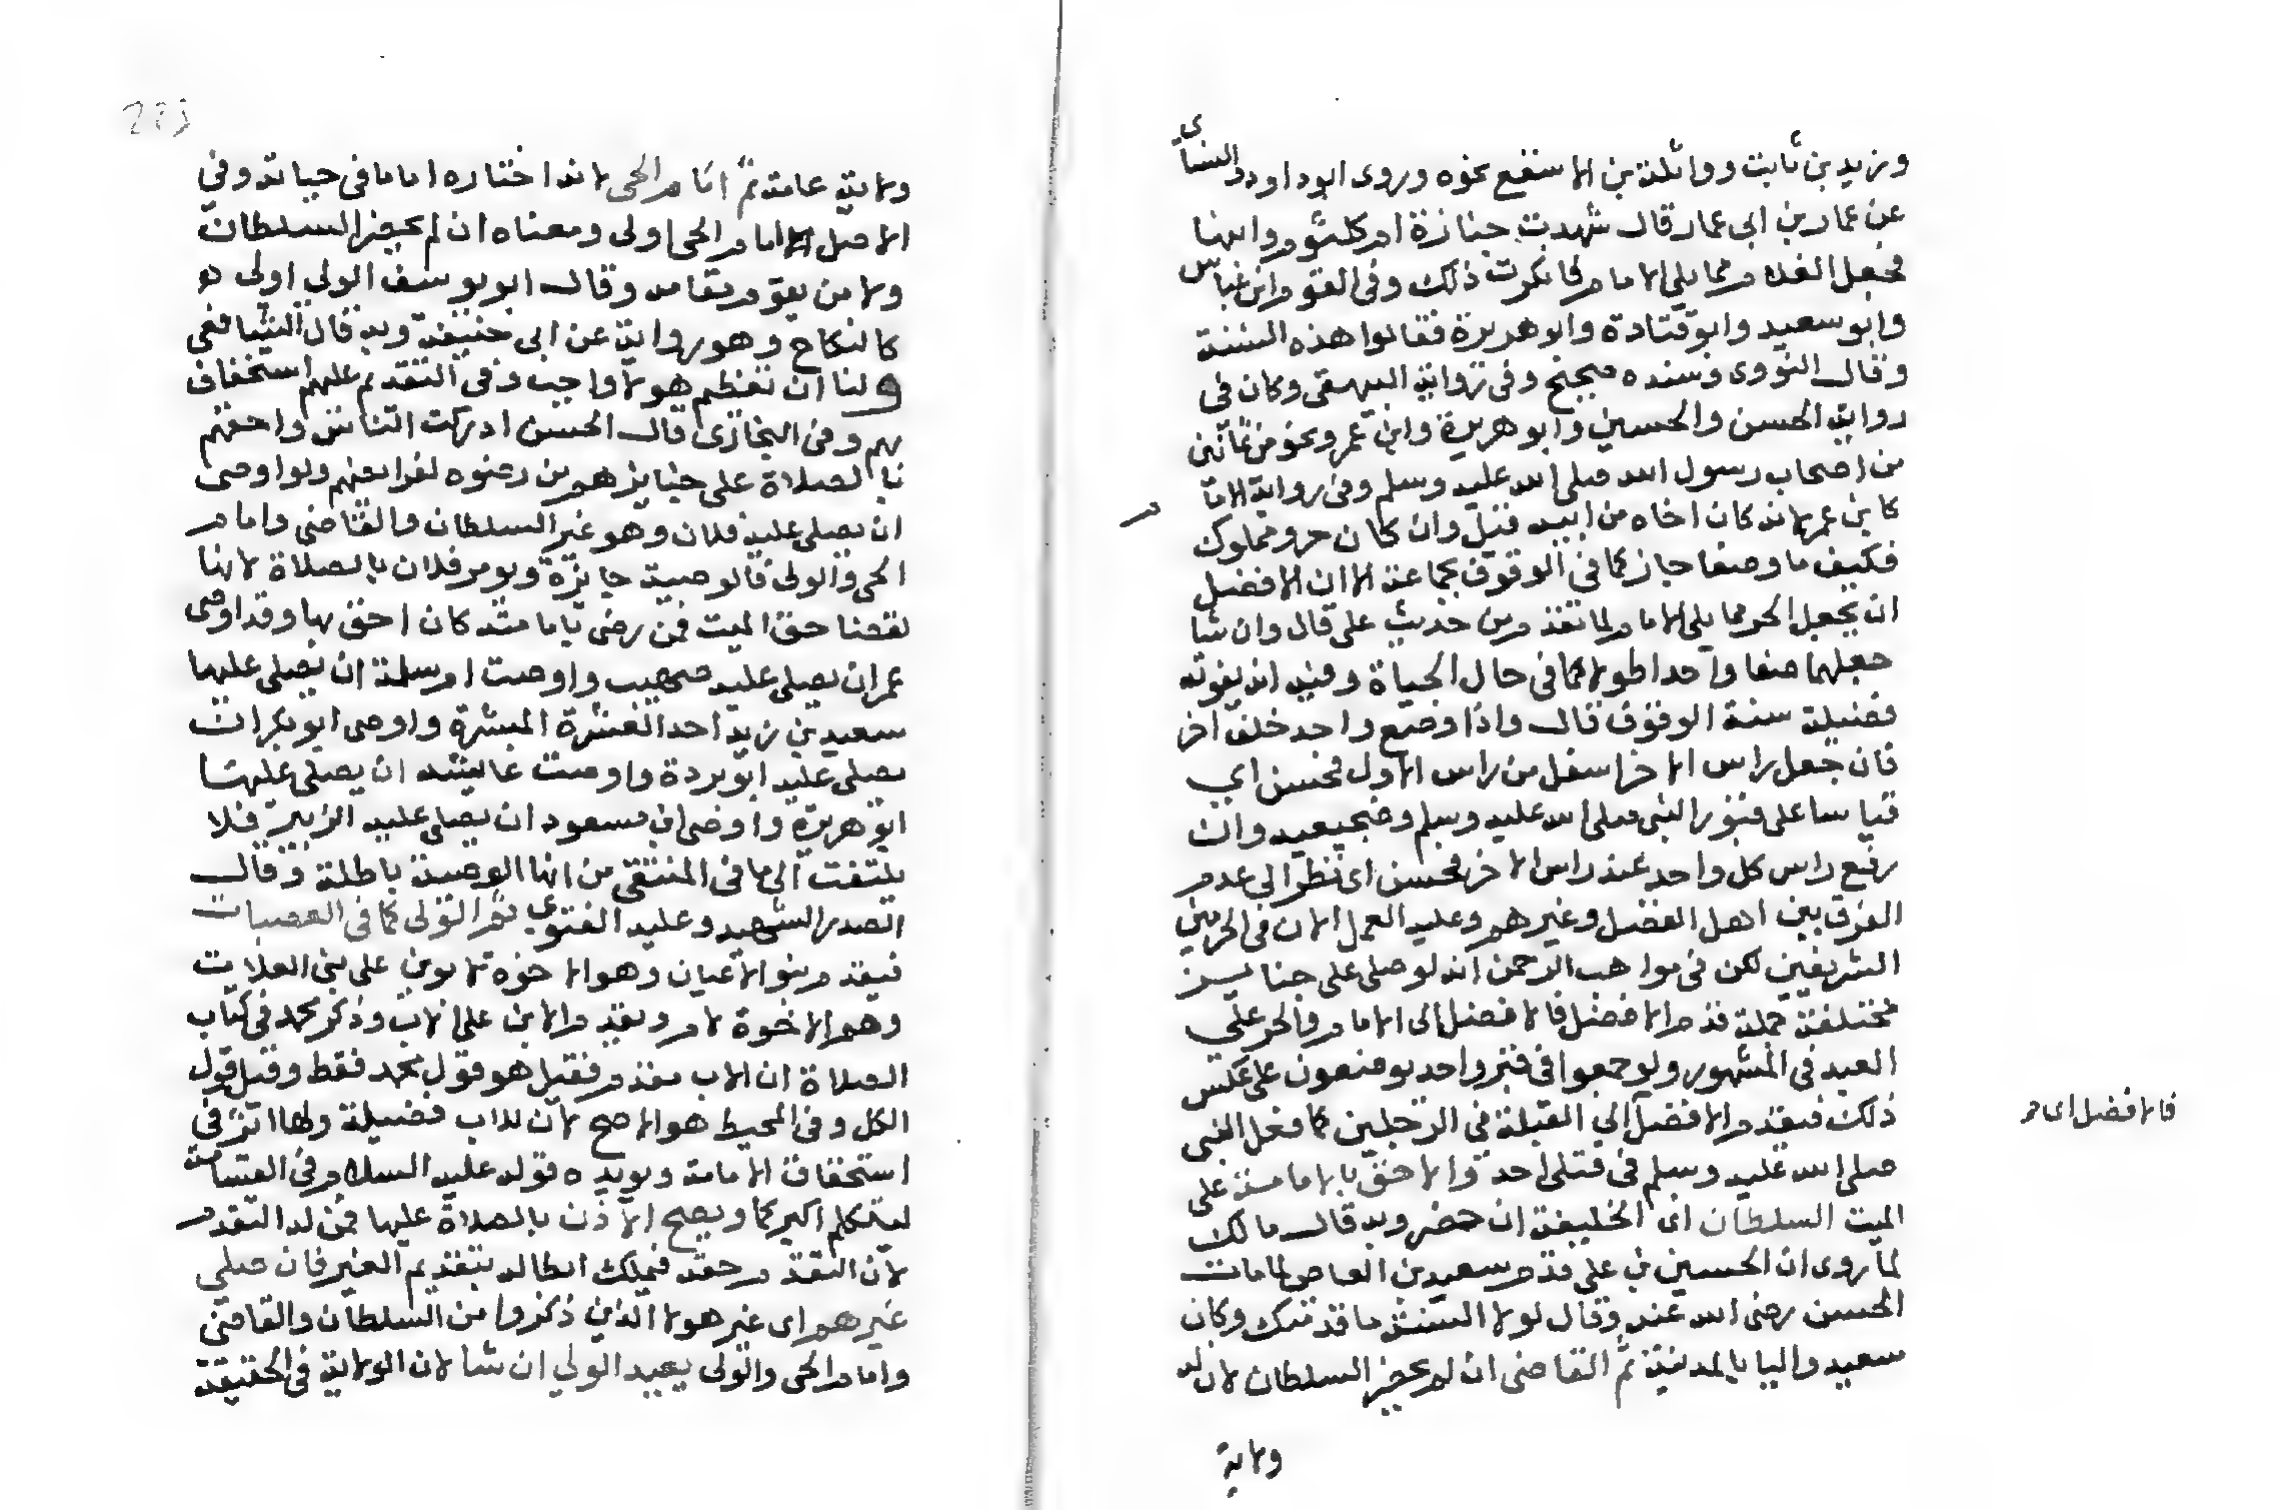 وزيد بن ثابت وواثلة بن الاسقع نحوه وروى ابو داود والنسائ
ى
عن عمار بن ابى عمار قال شهدت جنازة ام كلثوم وابنها
فجعل الغلام مما يلى الامام فانكرت ذلك وفى القوم ابن عباس
وابو سعيد وابو قتادة وابو هريرة فقالوا هذه السنة
وقال النووى وسنده صحيح وفى رواية البيهقى وكان فى
رواية الحسن والحسين وابو هريرة وابن عمر ونحو من ثمانين
من اصحاب رسول الله صلى الله عليه وسلم وفى رواية الاما
م
كابن عمر لانه كان اخاه من ابيه قتل وان كان حر ومملوك
فكيف ما وضعا جاز كما فى الوقوف بجماعة الا ان الافضل
ان يجعل الحر مما يلى الامام لما تقدم من حديث على قال وان شا
جعلهما صفا واحدا طولا كما فى حال الحياة وفيه انه يفوته
فضيلة سنة الوقوف قال واذا وضع واحد خلف اخر
فان جعل راس الاخر اسفل من راس الاول فحسن اى
قياسا على قبور النبى صلى الله عليه وسلم وضجيعيه وان
رفع راس كل واحد عند راس الاخر فحسن اى نظرا الى عدم
الفرق بين اهل الفضل وغيرهم وعليه العمل الان فى الحرمين
الشريفين لكن فى مواهب الرحمن انه لو صلى على جنايز
مختلفة جملة قدم الافضل فالافضل الى الامام والحر على
العبد فى المشهور ولو جمعوا فى قبر واحد يوضعون على عكس
ذلك فيقدم الافضل الى القبلة فى الرجلين كما فعل النبى
فالافضل اى م
صلى الله عليه وسلم فى قتلى احد والاحق بالامامة على
الميت السلطان اى الخليفة ان حضر وبه قال مالك
لما روى ان الحسين بن على قدم سعيد بن العاص لما مات
الحسن رضى الله عنه وقال لولا السنة ما قدمتك وكان
سعيد واليا بالمدينة ثم القاضى ان لم يحضر السلطان لان له
ولاية
ولاية عامة ثم امام الحى لانه اختاره اماما فى حياته وفي
الاصل الامام الحى اولى ومعناه ان لم يحضر السلطان
ولا من يقوم مقامه وقال ابو يوسف الولى اولى
كالنكاح وهو رواية عن ابى حنيفة وبه قال الشافعى
ولنا ان تعظيم هولا واجب وفى التقديم عليهم استخفاف
بهم وفى البخارى قال الحسن ادركت الناس واحقهم
بالصلاة على جنايزهم من رضوه لفرايضهم ولو اوصى
ان يصلى عليه فلان وهو غير السلطان والقاضى وامام
الحى والولى فالوصية جايزة ويومر فلان بالصلاة لانها
لقضا حق الميت فمن رضى بامامته كان احق بها وقد اوصى
عمر ان يصلى عليه صهيب واوصت ام سلمة ان يصلى عليها
سعيد بن زيد احد العشرة المبشرة واوصى ابو بكرة ان
يصلى عليه ابو بردة واوصت عايشه ان يصلى عليها
ابو هريرة واوصى ابن مسعود ان يصلى عليه الزبير فلا
يلتفت الى ما فى المنتقى من انها الوصية باطلة وقال
الصدر الشهيد وعليه الفتوى ثم الولى كما فى العصبات
فيقدم بنو الاعيان وهو الاخوة لابوين على بنى العلات
وهم الاخوة لام ويقدم الابن على الاب وذكر محمد فى كتاب
الصلاة ان الاب يقدم فقيل هو قول محمد فقط وقيل قول
الكل وفى المحيط هو الاصح لان للاب فضيلة ولها اثر فى
استحقاق الامامة ويويده قوله عليه السلام فى القسامة
ليتكلم اكبركما ويصح الاذن بالصلاة عليها فمن له التقدم
لان التقدم حقه فيملك ابطاله بتقديم الغير فان صلى
غيرهم اى غير هولا الذين ذكروا من السلطان والقاضى
وامام الحى والولى يعيد الولي ان شا لان الولاية فى الحقيقة